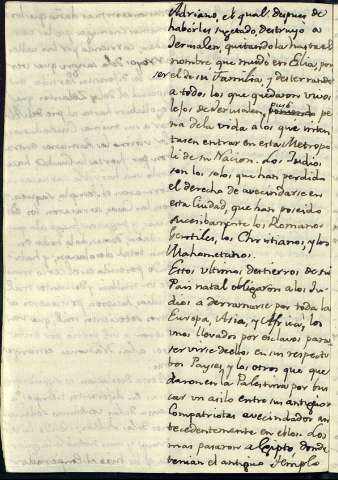 Adriano, el qual despues de
haberles sugetado destruyo a
Jerusalen, quitandola hasta el
nombre que mudò en Elia, por
ser el de su Familia, y desterrando
a todos los que quedaron vivos
lejos de Jerusalen, puso pe
na de la vida a los que inten
tasen entrar en esta Metropo
li de su Nacion. Los Judios
son los solos que han perdido
el derecho de avecindarse en
esta Ciudad, que han poseido
sucesibamente los Romanos
Gentiles, los Christianos, y los
Mahometanos.
Estos ultimos destierros de su
Pais natal obligaron a los Ju
dios a derramarse por toda la
Europa, Asia, y Africa, los
unos llevados por esclavos para
servirse de ellos en sus respecti
bos Payses, y los otros que que
daron en la Palestina por bus
car un asilo entre sus antiguos
Compatriotas avecindados an
tecedentemente en ellos. Los
mas pasaron a Egipto donde
tenian el antiguo Templo